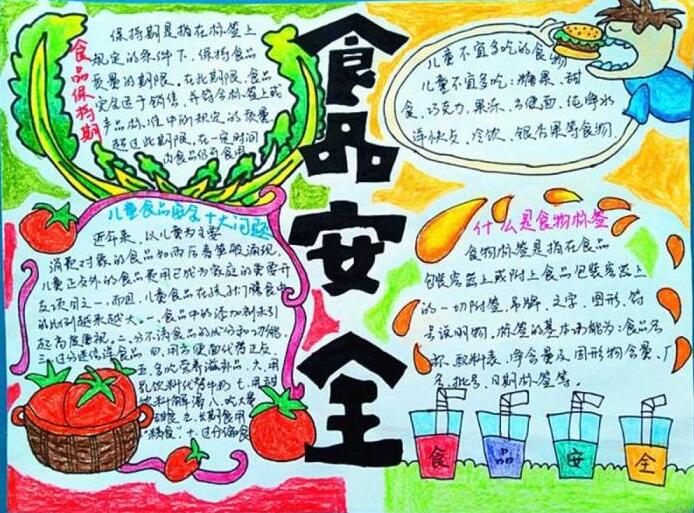 食品安全
食品保持期
保持期是指在标签上
规定的条件下、保持食品
质量的期限。在此期限，食品
完全适于销售，并符合标签上或
产品标准中所规定的质量。
超过此期限，在一定时间
内食品仍可食用
儿童不宜多吃的食物
儿童不宜多吃：糖果、甜
食、巧克力、果冻、方便面、纯净水
洋快餐、冷饮、银杏果等食物
儿童食品安全十大问题
近年来，以儿童为主要
消费对象的食品如雨后春笋般涌现，
儿童正友外的食品费用已成为家庭的重要开
支项目之一，而且，儿童食品在孩子们膳食中
的比例越来越大。一、食品中的添加剂未引
起高度重视。二、分不清食品的成分和功能。
三、过分迷信洋食品 四、用方便面代替正友
五、多吃营养滋补品。六、用
乳饮料代替牛奶 七、用甜
饮料解渴 八、吃大量
甜食 九、长期食用
"精食" 十、过分偏食
什么是食物标签
食物标签是指在食品
包装容器上或附上食品包装容器上
的一切附签、吊牌、文字、图形、符
号说明物。标签的基本功能为：食品名
称、配料表、净含量及固形物含量、厂
名、批号、日期标签等。
食 品 安 全